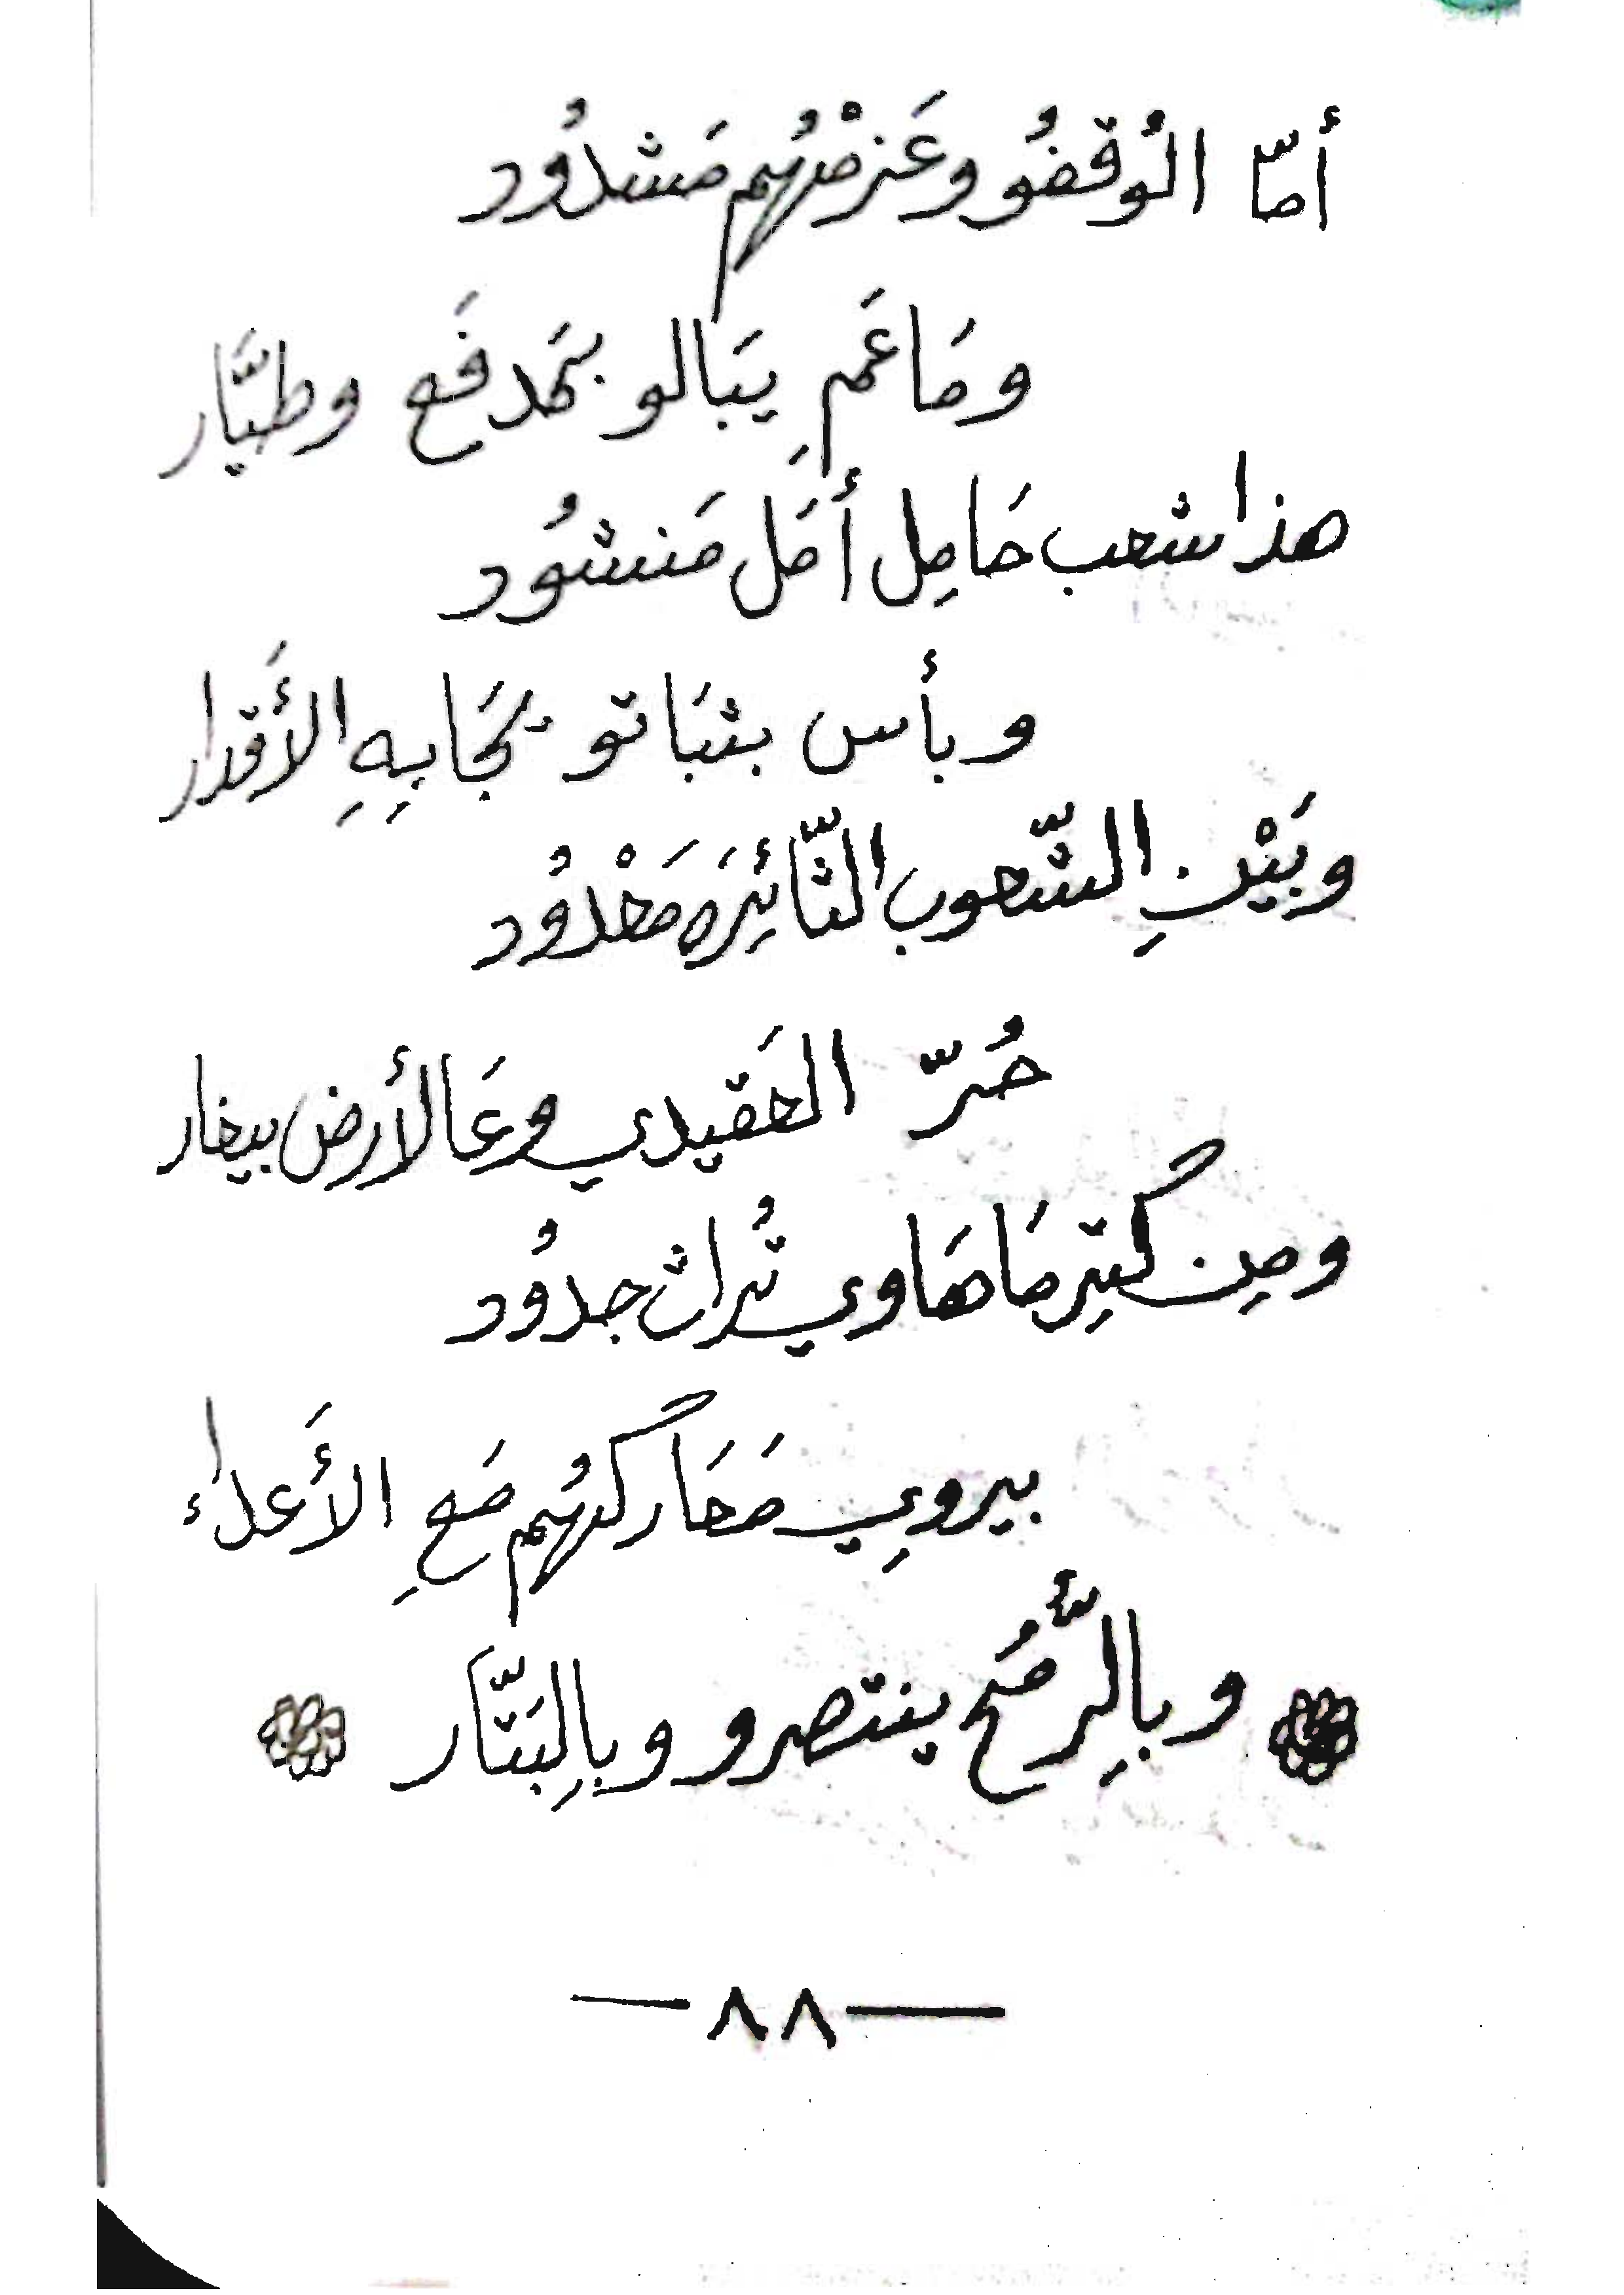 أمّا الُوقفُو وعَزمْهُم مَشدُود
ومَا عَم يبَالو بمَدفَع وطيَّار
هذا شعب حَامِل أمَل مَنشُود
وبأس بثبَاتو تجَابِهِ الأَقدار
وبَيْنِ الشّعوب الثَّائِرَه مَعْدُود
حُرّ العَقيدي وعَالأرض بيغار
ومِن كتِير مَا هَاوي تُراث جدُود
بيروِي مَعَاركهُم مَعِ الأَعداء
وبالِرُّمح ينتصرو وبالِبَتَّار
— ٨٨ —